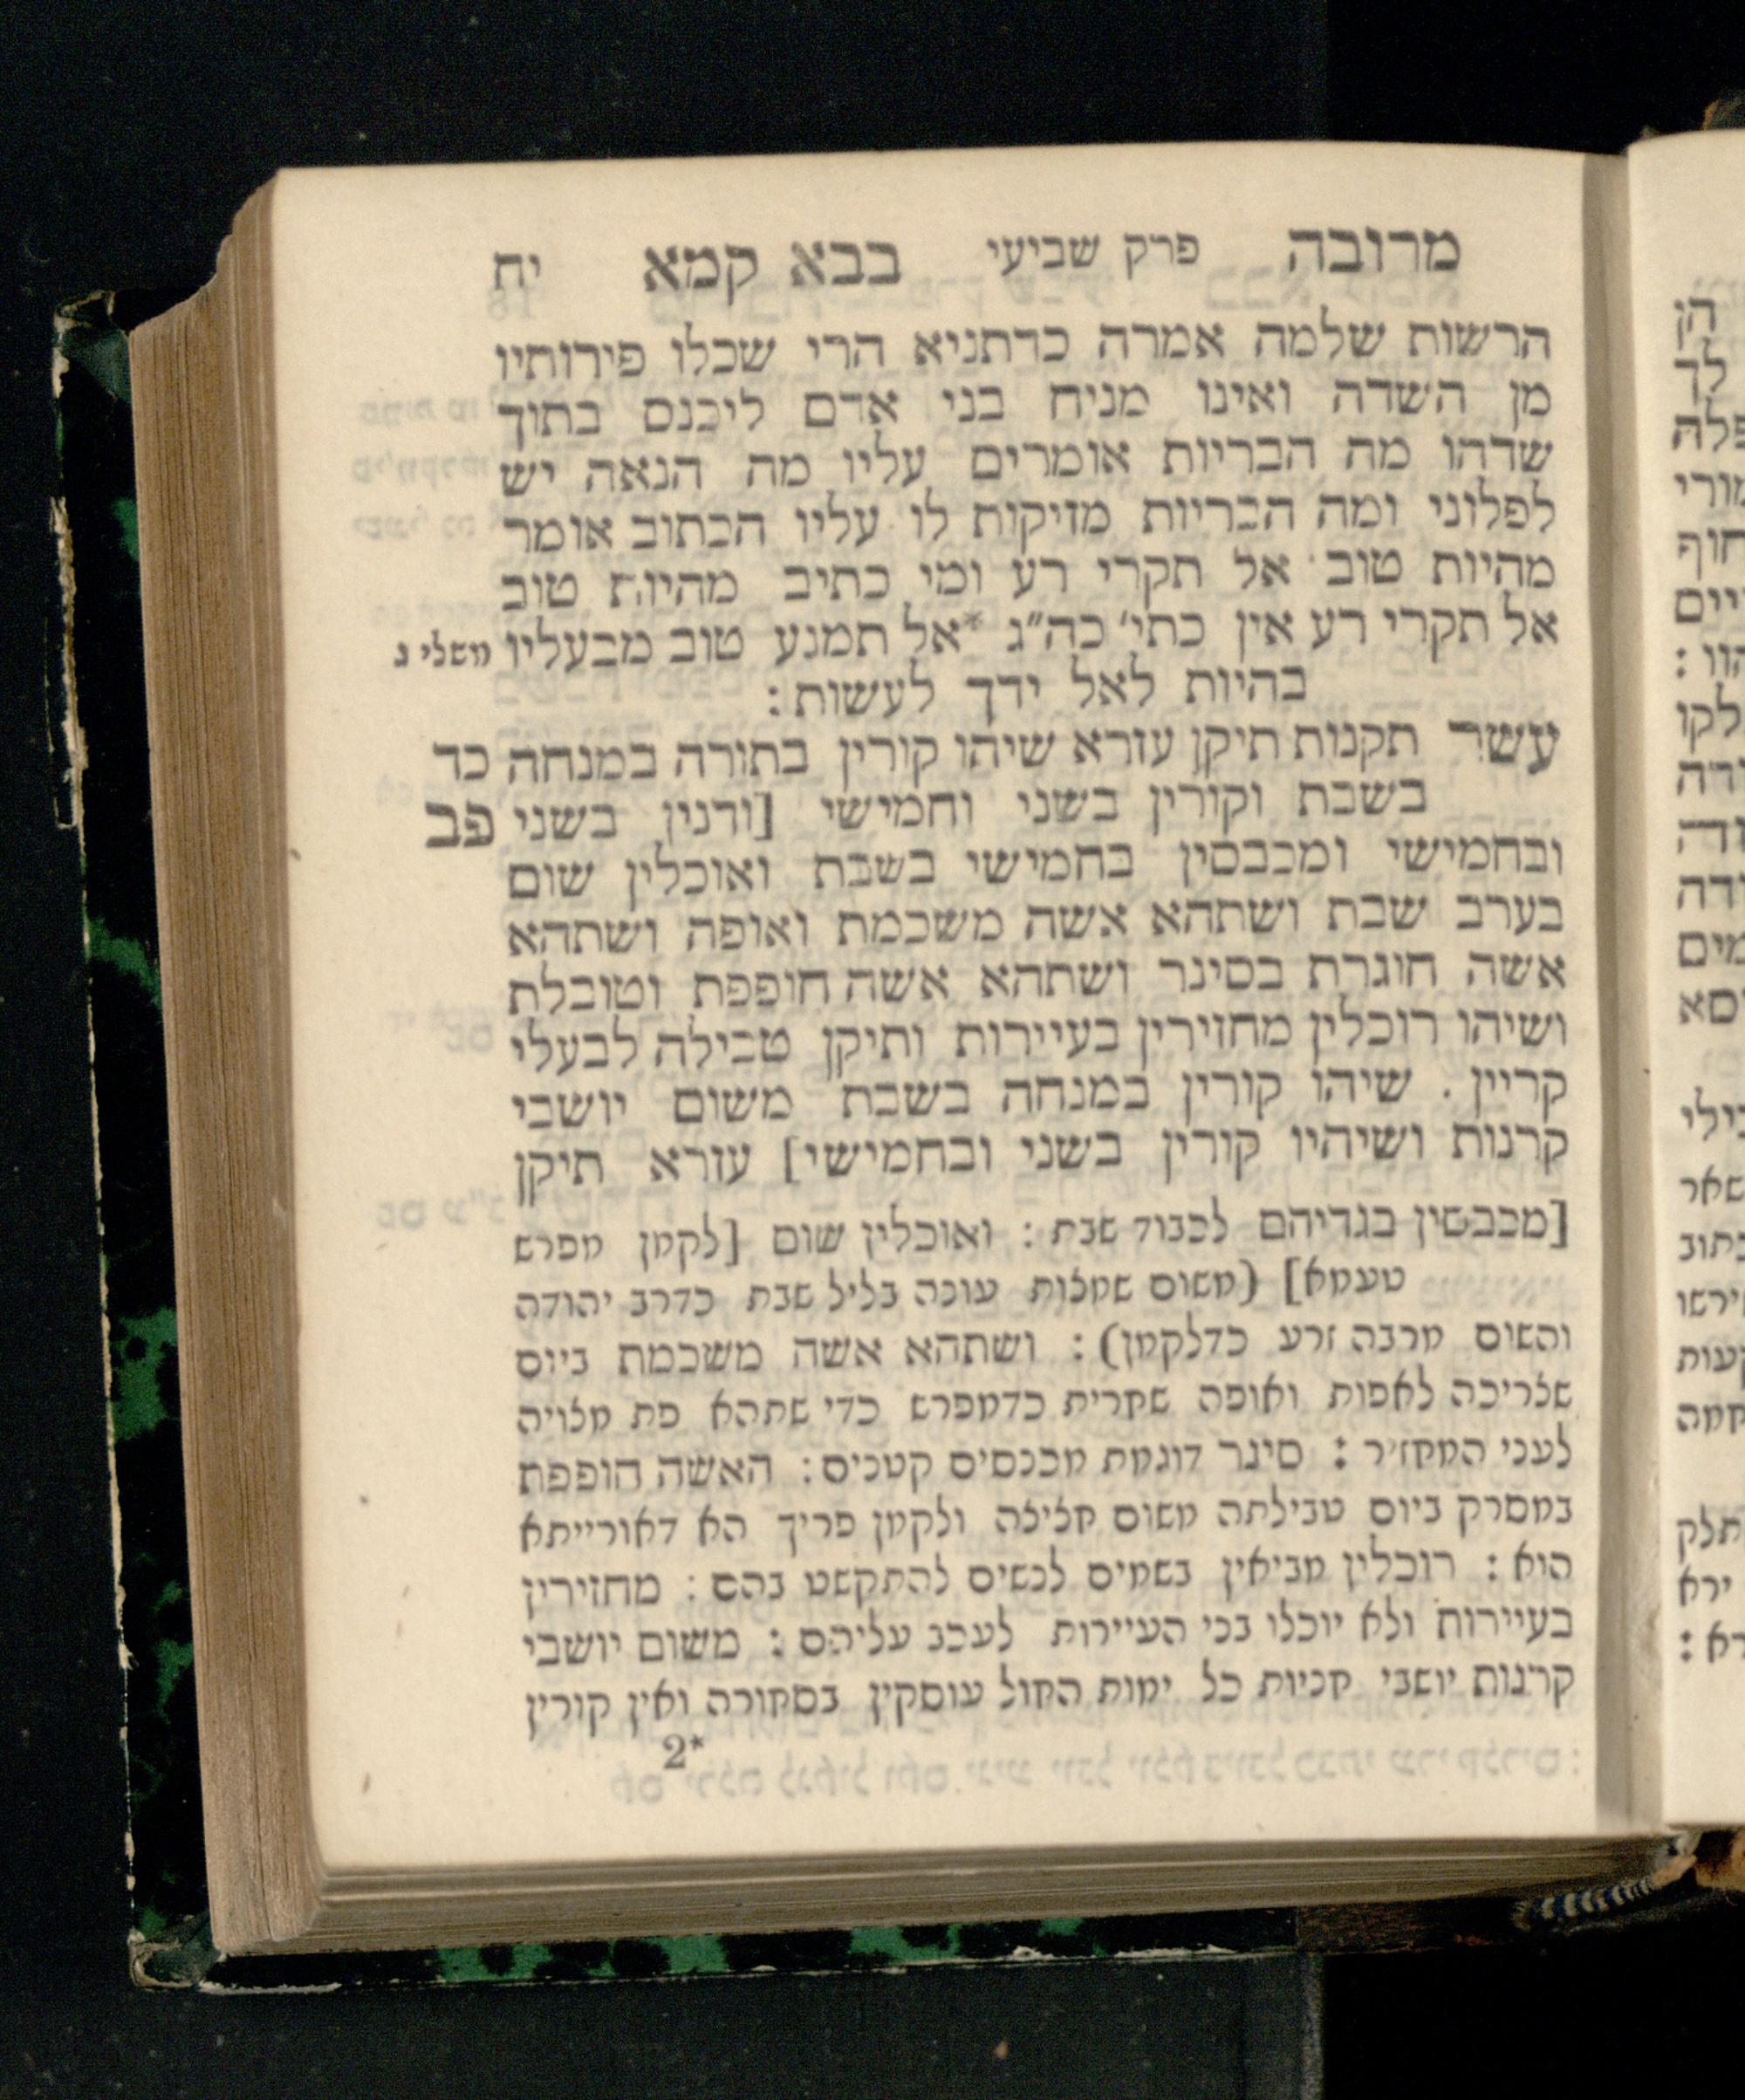 מרובה פרק שביעי בבא קמא יח
הרשות שלמה אמרה כדתניא הרי שכלו פירותיו
מן השדה ואינו מניח בני אדם ליכנס בתוך
שדהו מה הבריות אומרים עליו מה הנאה יש
לפלוני ומה הבריות מזיקות לו עליו הכתוב אומר
מהיות טוב אל תקרי רע ומי כתיב מהיות טוב
אל תקרי רע אין כתי' כה"ג *אל תמנע טוב מבעליו משלי ג
בהיות לאל ידך לעשות :
עשר תקנות תיקן עזרא שיהו קורין בתורה במנחה כד
בשבת וקורין בשני וחמישי [ודנין בשני פב
ובחמישי ומכבסין בחמישי בשבת ואוכלין שום
בערב שבת ושתהא אשה משכמת ואופה ושתהא
אשה חוגרת בסינר ושתהא אשה חופפת וטובלת
ושיהו רוכלין מחזירין בעיירות ותיקן טבילה לבעלי
קריין . שיהו קורין במנחה בשבת משום יושבי
קרנות ושיהיו קורין בשני ובחמישי] עזרא תיקן
[מכבשין בגדיהם לכבוד שבת : ואוכלין שום [לקמן מפרש
טעמא] (משום שמצות עונה בליל שבת כדרב יהודה
והשום מרבה זרע כדלקמן) : ושתהא אשה משכמת ביום
שצריכה לאפות ואופה שחרית כדמפרש כדי שתהא פת מצויה
לעני המחזיר : סינר דוגמת מכנסים קטנים : האשה חופפת
במסרק ביום טבילתה משום חציצה ולקמן פריך הא דאורייתא
הוא : רוכלין מביאין בשמים לנשים להתקשט בהם : מחזירין
בעיירות ולא יוכלו בני העיירות לעכב עליהם : משום יושבי
קרנות יושבי חניות כל ימות החול עוסקין בסחורה ואין קורין
2*
הן
לך
פלה
חוף
יים
לקו
דה
מים
סא
שאר
ירשו
תלק
ירא